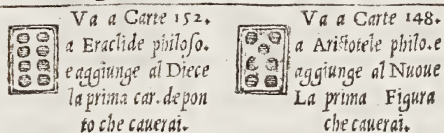 Va a Carte 152.
a Eraclide philoſo.
e aggiunge al Diece
la prima car. de pon
to che cauerai.
Va a Carte 148.
a Ariſtotele philo. e
aggiunge al Nuoue
La prima Figura
che cauerai.